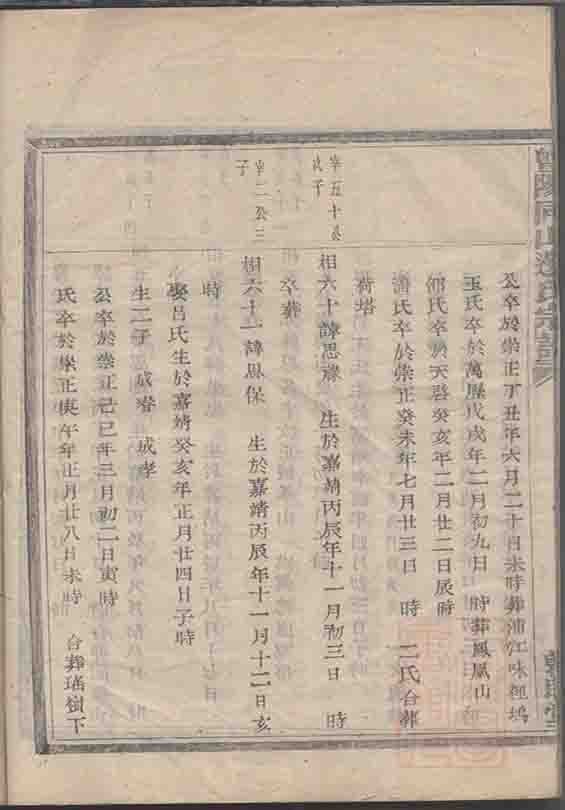 公卒於崇正丁丑年六月二十日未時葬浦江味經塢
王氏卒於萬歷戊戌年二月初九日 時葬鳳凰山
氏卒於天啓癸亥年二月廿二日辰時
潘氏卒於崇正癸未年七月廿三日 時 二氏合葬
荷塔
宰五十公
次子
相六十諱思 生於嘉靖丙辰年十一月初三日 時
卒葬
宰二公三
子
相六十一諱思保 生於嘉靖丙辰年十一月十二日亥
時
娶呂氏生於嘉靖癸亥年正月廿四日子時
生二子 成 成孝
公卒於崇正己巳年三月初二日寅時
氏卒於崇正庚午年正月廿八日未時 合葬瑤樹下